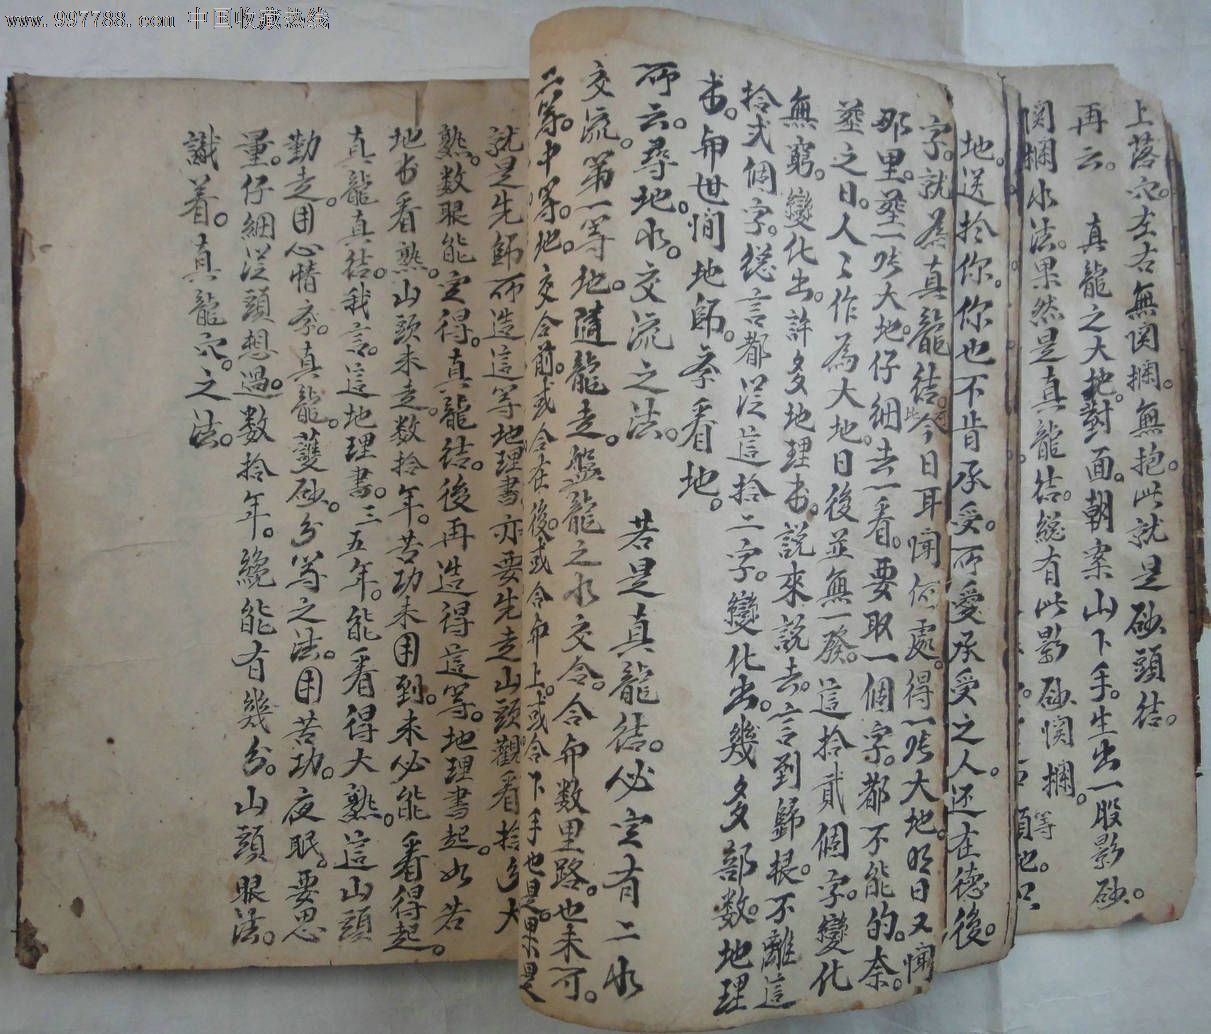 www.997788.com 中国收藏热线
上落穴。左右無関攔。無抱。此就是砂頭结。
再云。 真龍之大地。對面。朝案山下手。生出一股影砂。
関攔水法。果然是真龍结。縂有此影砂関攔。等
地。送拾你。你也不肯承受。而爱承受之人。还在德後。
字。就為真龍结。今日耳闻何處。得一穴大地。明日又闻
那里。葬一穴大地。仔细去一看。要取一個字。都不能的。奈
葬之日。人々作為大地。日後並無一發。這拾貳個字。變化
無窮。變化出。許多地理书。説來説去。言到歸根。不離這
拾弍個字。縂言都从這拾二字。變化出。幾多部数。地理
书。布世間地師。叅看地。
而云。尋地水。交流之法。 若是真龍结。必定有二水
交流。第一等地。隨龍走。盤龍之水交合。合布数里路。也未可。
二等。中等。地。交合前。或合在後。或合布上。或合下手也是。果是
就是先師而造這等地理書亦要先走山頭觀看拾多大
熟。数眼能定得。真龍结。後再造得這等。地理書起。如若
地书看熟。山頭未走。数拾年。苦功未用到。未必能看得起。
真龍真结。我言。這地理書。三五年。能看得大熟。這山頭
勤走。用心情叅。真龍。䕶砂。分等之法。用苦功。夜眠。要思
量。仔細从頭想過。数拾年。纔能有幾分。山頭眼法。
識着。真龍穴。之法。